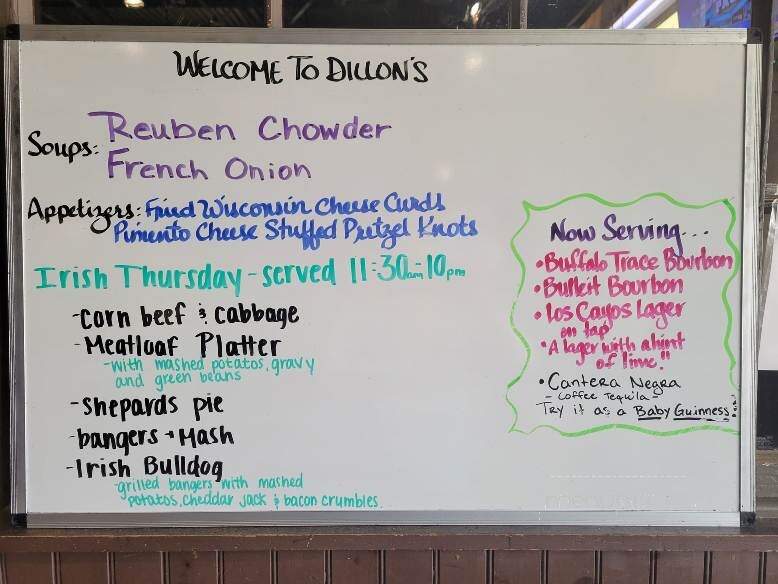 WELCOME TO DILLON'S
Soups: Reuben Chowder
French Onion
Appetizers: Fried Wisconsin Cheese Curds
Pimento Cheese Stuffed Pretzel Knots
Irish Thursday - served 11:30am-10pm
-corn beef & cabbage
-Meatloaf Platter
-with mashed potatos, gravy
and green beans
-shepards pie
-bangers + Mash
-Irish Bulldog
-grilled bangers with mashed
potatos, cheddar jack & bacon crumbles
Now Serving...
•Buffalo Trace Bourbon
•Bulleit Bourbon
•Los Cayos Lager
on tap
"A lager with a hint
of lime!"
•Cantera Negra
-Coffee Tequila-
Try it as a Baby Guinness!